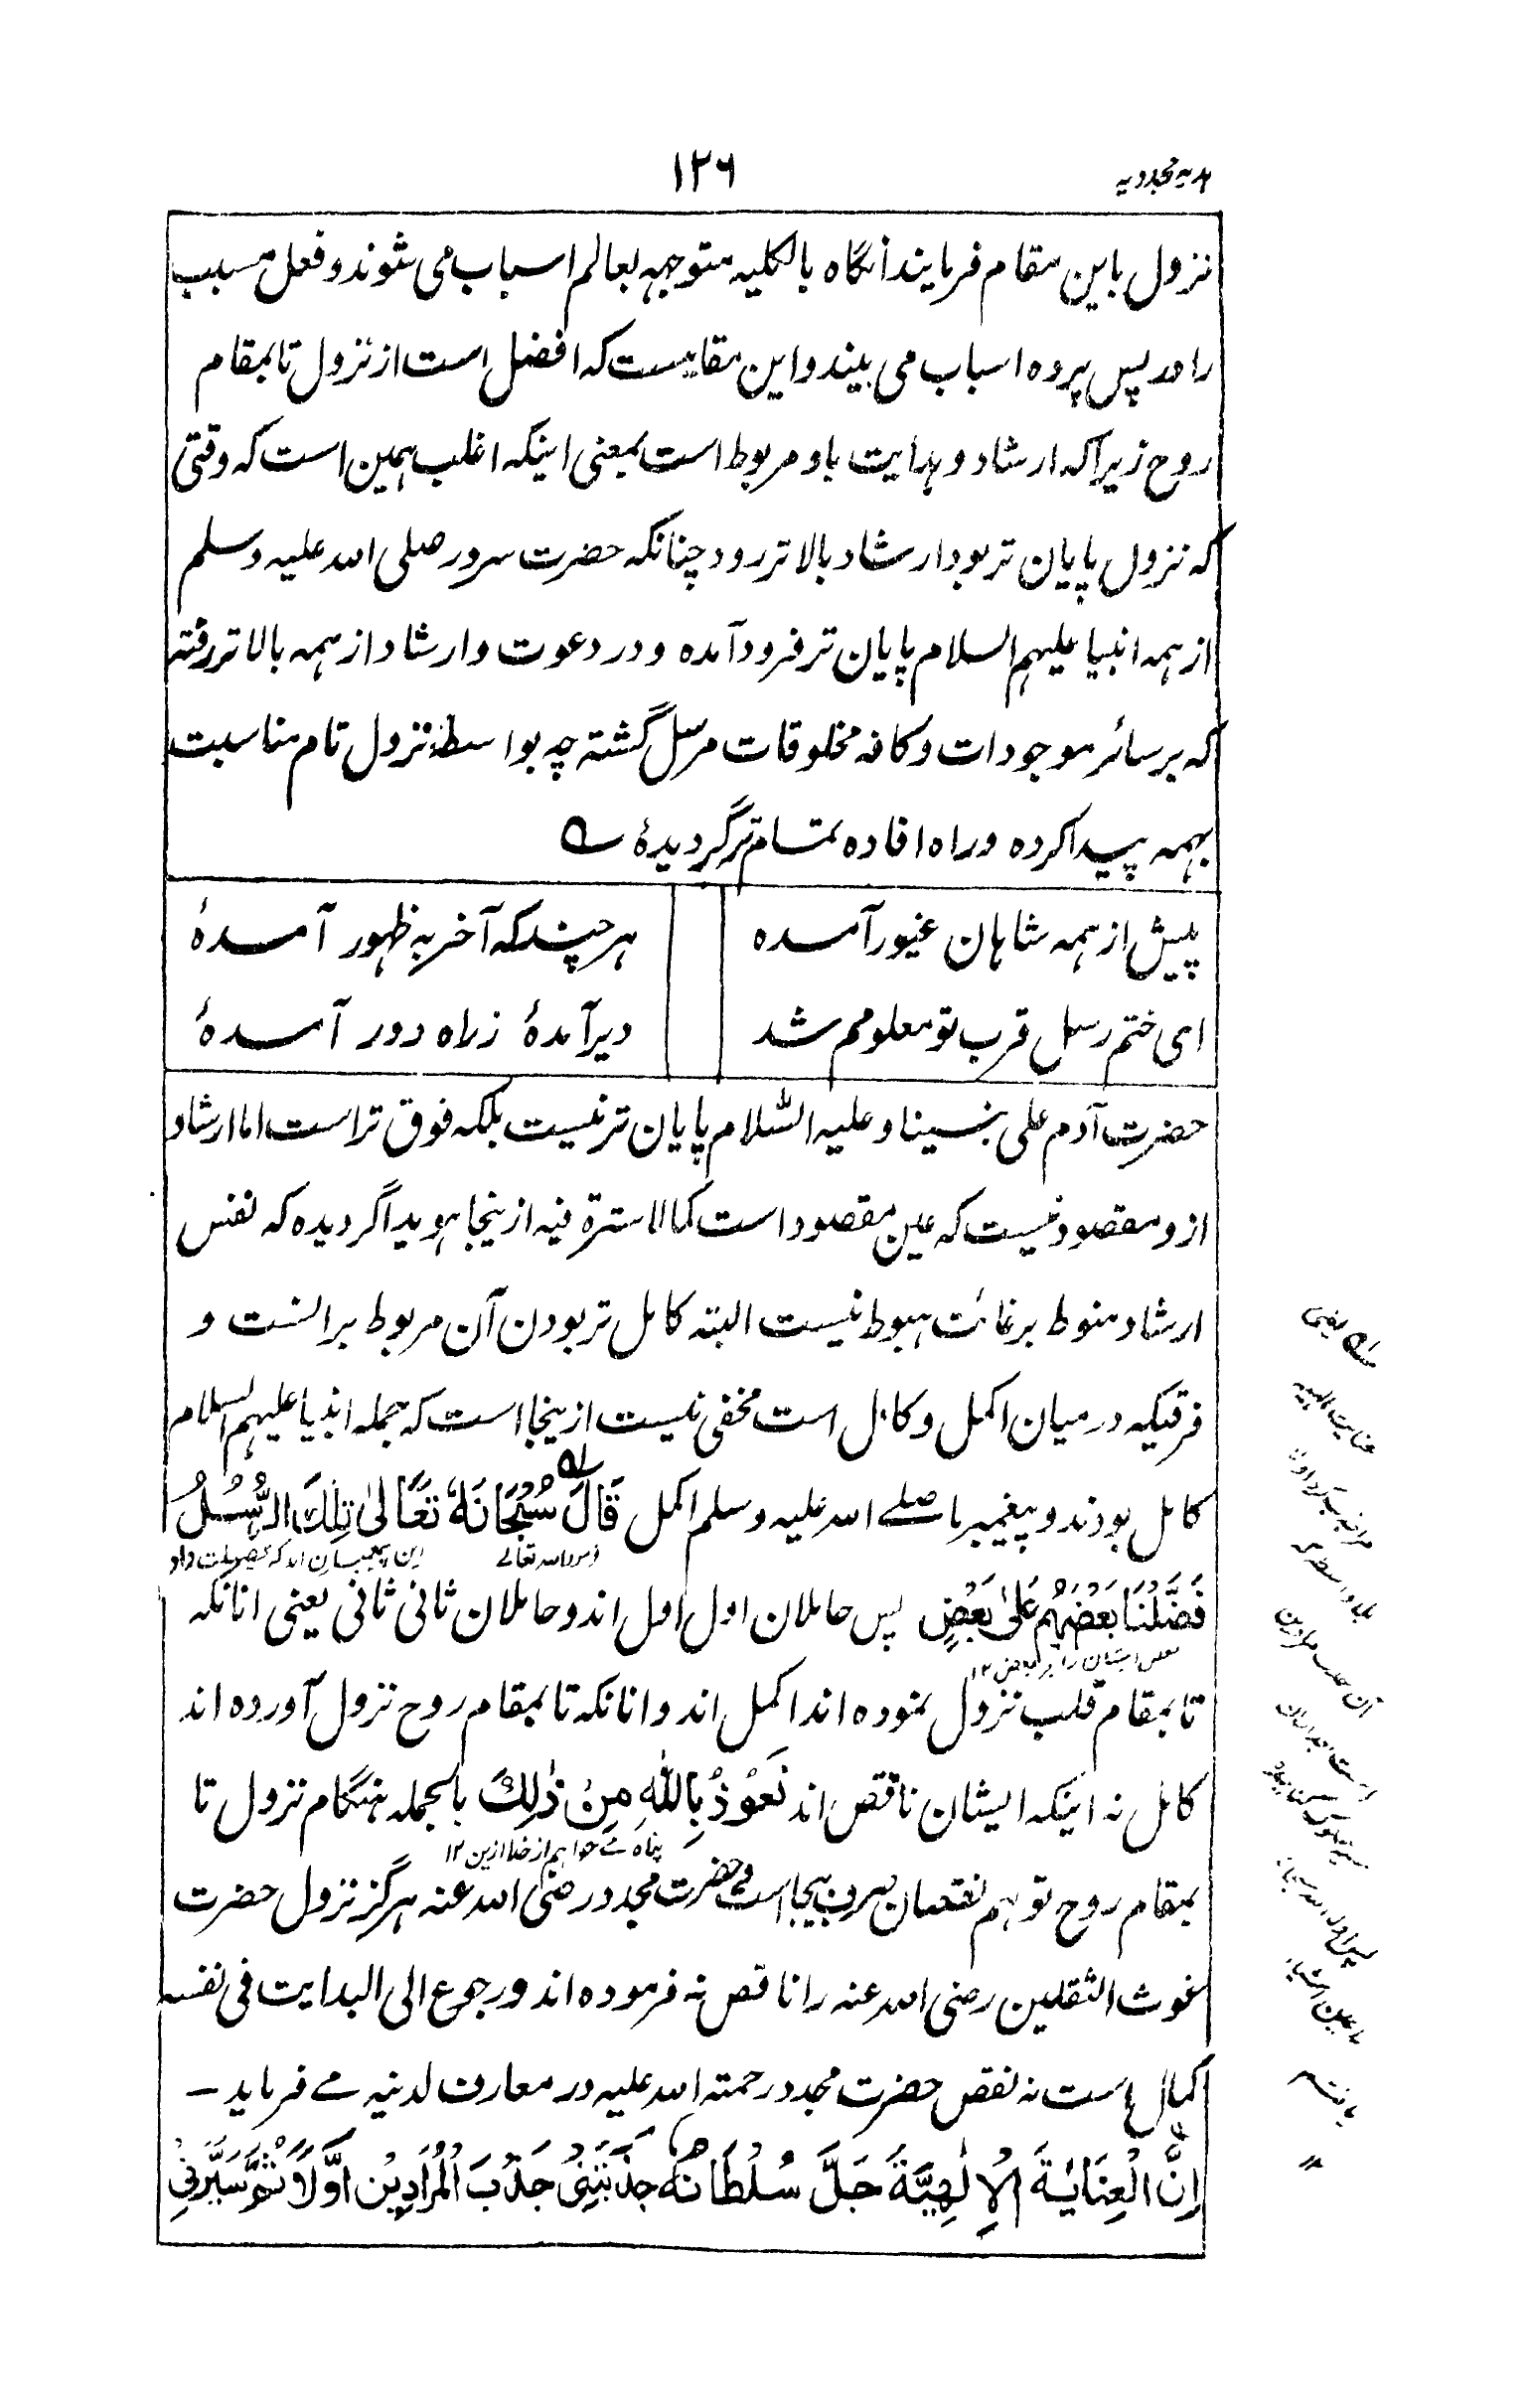 ۱۲۶
ہدیہ مجددیہ
نزول باین مقام فرمایند آنگاہ بالکلیہ متوجہ بعالم اسباب می شوند و فعل مسبب
را در پس پردہ اسباب می بیند و این مقامیست کہ افضل است از نزول تا بمقام
روح زیرا کہ ارشاد و ہدایت باو مربوط است بمعنی اینکہ اغلب ہمین است کہ وقتی
کہ نزول پایان تر بود ارشاد بالاتر رود چنانکہ حضرت سرور صلی اللہ علیہ وسلم
از ہمہ انبیا علیہم السلام پایان تر فرود آمدہ و در دعوت و ارشاد از ہمہ بالاتر رفتہ
کہ بر سائر موجودات و کافہ مخلوقات مرسل گشتہ چہ بواسطۂ نزول تام مناسبت
بہمہ پیدا کردہ و راہ افادہ تمام تر گردیدۂ ؎
پیش از ہمہ شاہان غیور آمدہ
ہر چند کہ آخر بہ ظہور آمدۂ
ای ختم رسل قرب تو معلومم شد
دیر آمدۂ ز راہ دور آمدۂ
حضرت آدم علی نبینا و علیہ السّلام پایان تر نیست بلکہ فوق تر است اما ارشاد
ازو مقصود نیست کہ عین مقصود است کما لا سترۃ فیہ ازینجا ہویدا گردیدہ کہ نفس
ارشاد منوط بر غائت ہبوط نیست البتہ کامل تر بودن آن مربوط برانست و
فرقیکہ درمیان اکمل و کامل است مخفی نیست ازینجا است کہ جملہ انبیا علیہم السلام
کامل بودند و پیغمبر ما صلے اللہ علیہ وسلم اکمل قَالَ سُبْحَانَهٗ تَعَالٰی تِلْكَ الرُّسُلُ
فرمود اللہ تعالے
این پیغمبران اند کہ فضیلت داد
فَضَّلْنَا بَعْضَهُمْ عَلٰی بَعْضٍ پس حاملان اول اول اند و حاملان ثانی ثانی یعنی انانکہ
بعض ایشان را بر بعض ۱۲
تا بمقام قلب نزول نمودہ اند اکمل اند و انانکہ تا بمقام روح نزول آوردہ اند
کامل نہ اینکہ ایشان ناقص اند نَعُوْذُ بِاللّٰهِ مِنْ ذٰلِكَ بالجملہ ہنگام نزول تا
پناہ مے خواہیم از خدا ازین ۱۲
بمقام روح توہم نقصان صرف بیجا است و حضرت مجدد رضی اللہ عنہ ہرگز نزول حضرت
غوث الثقلین رضی اللہ عنہ را ناقص نہ فرمودہ اند و رجوع الی البدایت فی نفسہ
اکمال است نہ نقص حضرت مجدد رحمتہ اللہ علیہ در معارف لدنیہ مے فرماید –
اِنَّ الْعِنَايَةَ الْاِلٰهِيَّةَ جَلَّ سُلْطَانُهٗ جَذَبَتْنِیْ جَذْبَ الْمُرَادِيْنَ اَوَّلًا ثُمَّ سَيَّرَنِیْ
یعنی
عنایت الہیہ
یافتم